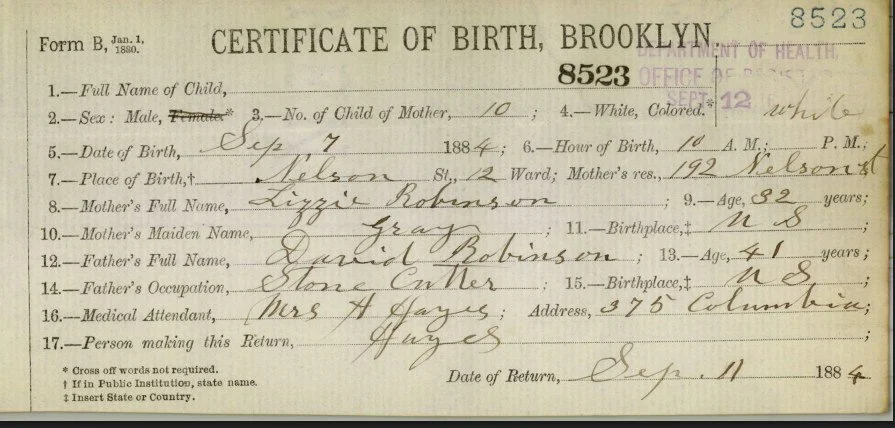 8523
Form B, Jan. 1, 1880. CERTIFICATE OF BIRTH, BROOKLYN.
DEPARTMENT OF HEALTH,
8523 OFFICE OF
SEPT 12
1.—Full Name of Child,
2.—Sex: Male, Female* 3.—No. of Child of Mother, 10 ; 4.—White, Colored.* white
5.—Date of Birth, Sep. 7 1884; 6.—Hour of Birth, 10 A. M.; P. M.;
7.—Place of Birth,† Nelson St., 12 Ward; Mother's res., 192 Nelson st
8.—Mother's Full Name, Lizzie Robinson ; 9.—Age, 32 years;
10.—Mother's Maiden Name, Gray ; 11.—Birthplace,‡ U S ;
12.—Father's Full Name, David Robinson ; 13.—Age, 41 years;
14.—Father's Occupation, Stone Cutter ; 15.—Birthplace,‡ U S ;
16.—Medical Attendant, Mrs H Hayes ; Address, 375 Columbia;
17.—Person making this Return, Hayes ;
* Cross off words not required.
† If in Public Institution, state name.
‡ Insert State or Country.
Date of Return, Sep. 11 1884